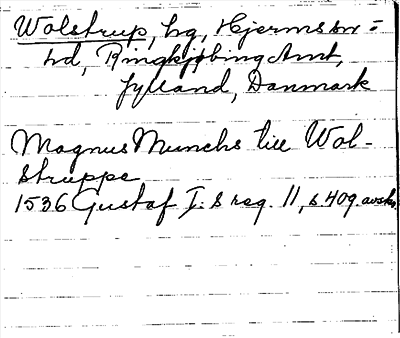 Wolstrup, hg, Hjerms sn =
hd, Ringkjøbing Amt,
Jylland, Danmark
Magnus Munchs till Wol-
struppe
1536 Gustaf I:s reg. 11, s 409. avskr.